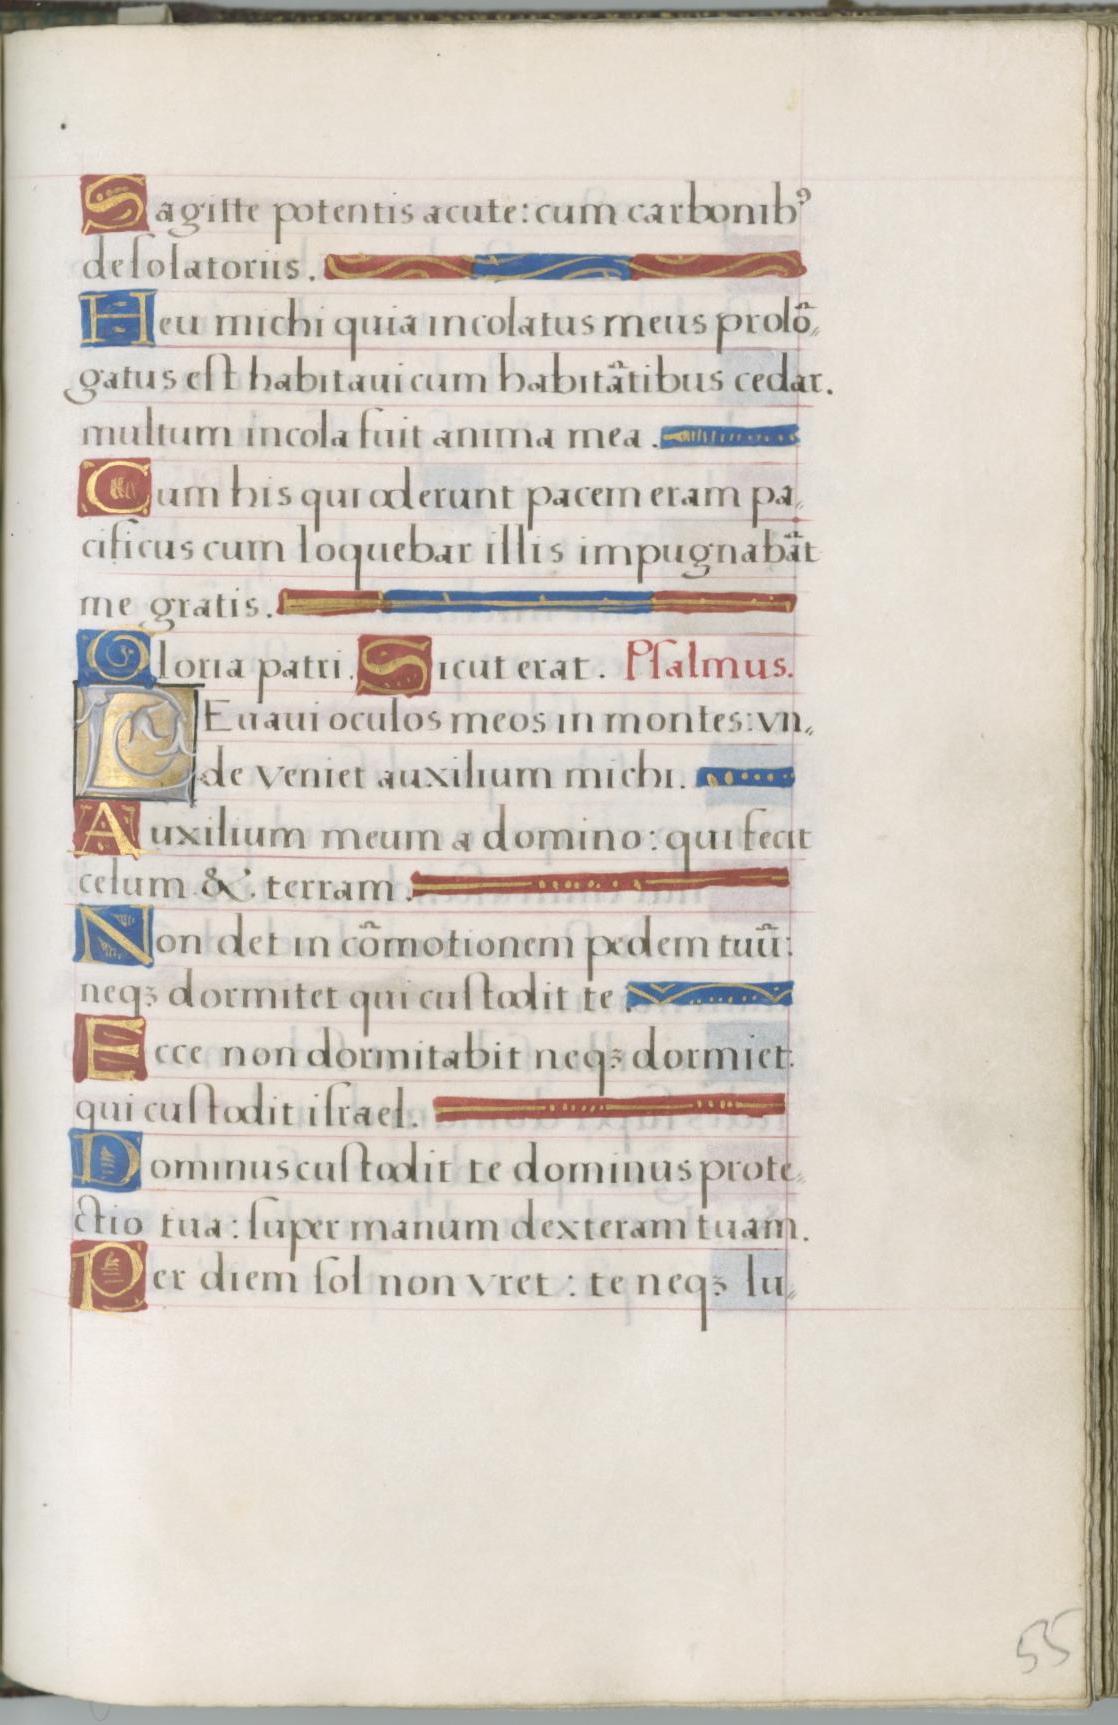 Sagitte potentis acute: cum carbonibꝰ
deſolatoriis.
Heu michi quia incolatus meus prolõ„
gatus eſt habitaui cum habitãtibus cedar.
multum incola fuit anima mea.
Cum his qui oderunt pacem eram pa„
cificus cum loquebar illis impugnabãt
me gratis.
Gloria patri. Sicut erat. Pſalmus.
LEuaui oculos meos in montes: vn„
de veniet auxilium michi.
Auxilium meum a domino: qui fecit
celum & terram.
Non det in cõmotionem pedem tuũ:
neqꝫ dormitet qui cuſtodit te.
Ecce non dormitabit neqꝫ dormiet:
qui cuſtodit iſrael.
Dominus cuſtodit te dominus prote„
ctio tua: ſuper manum dexteram tuam.
Per diem ſol non vret: te neqꝫ lu„
55